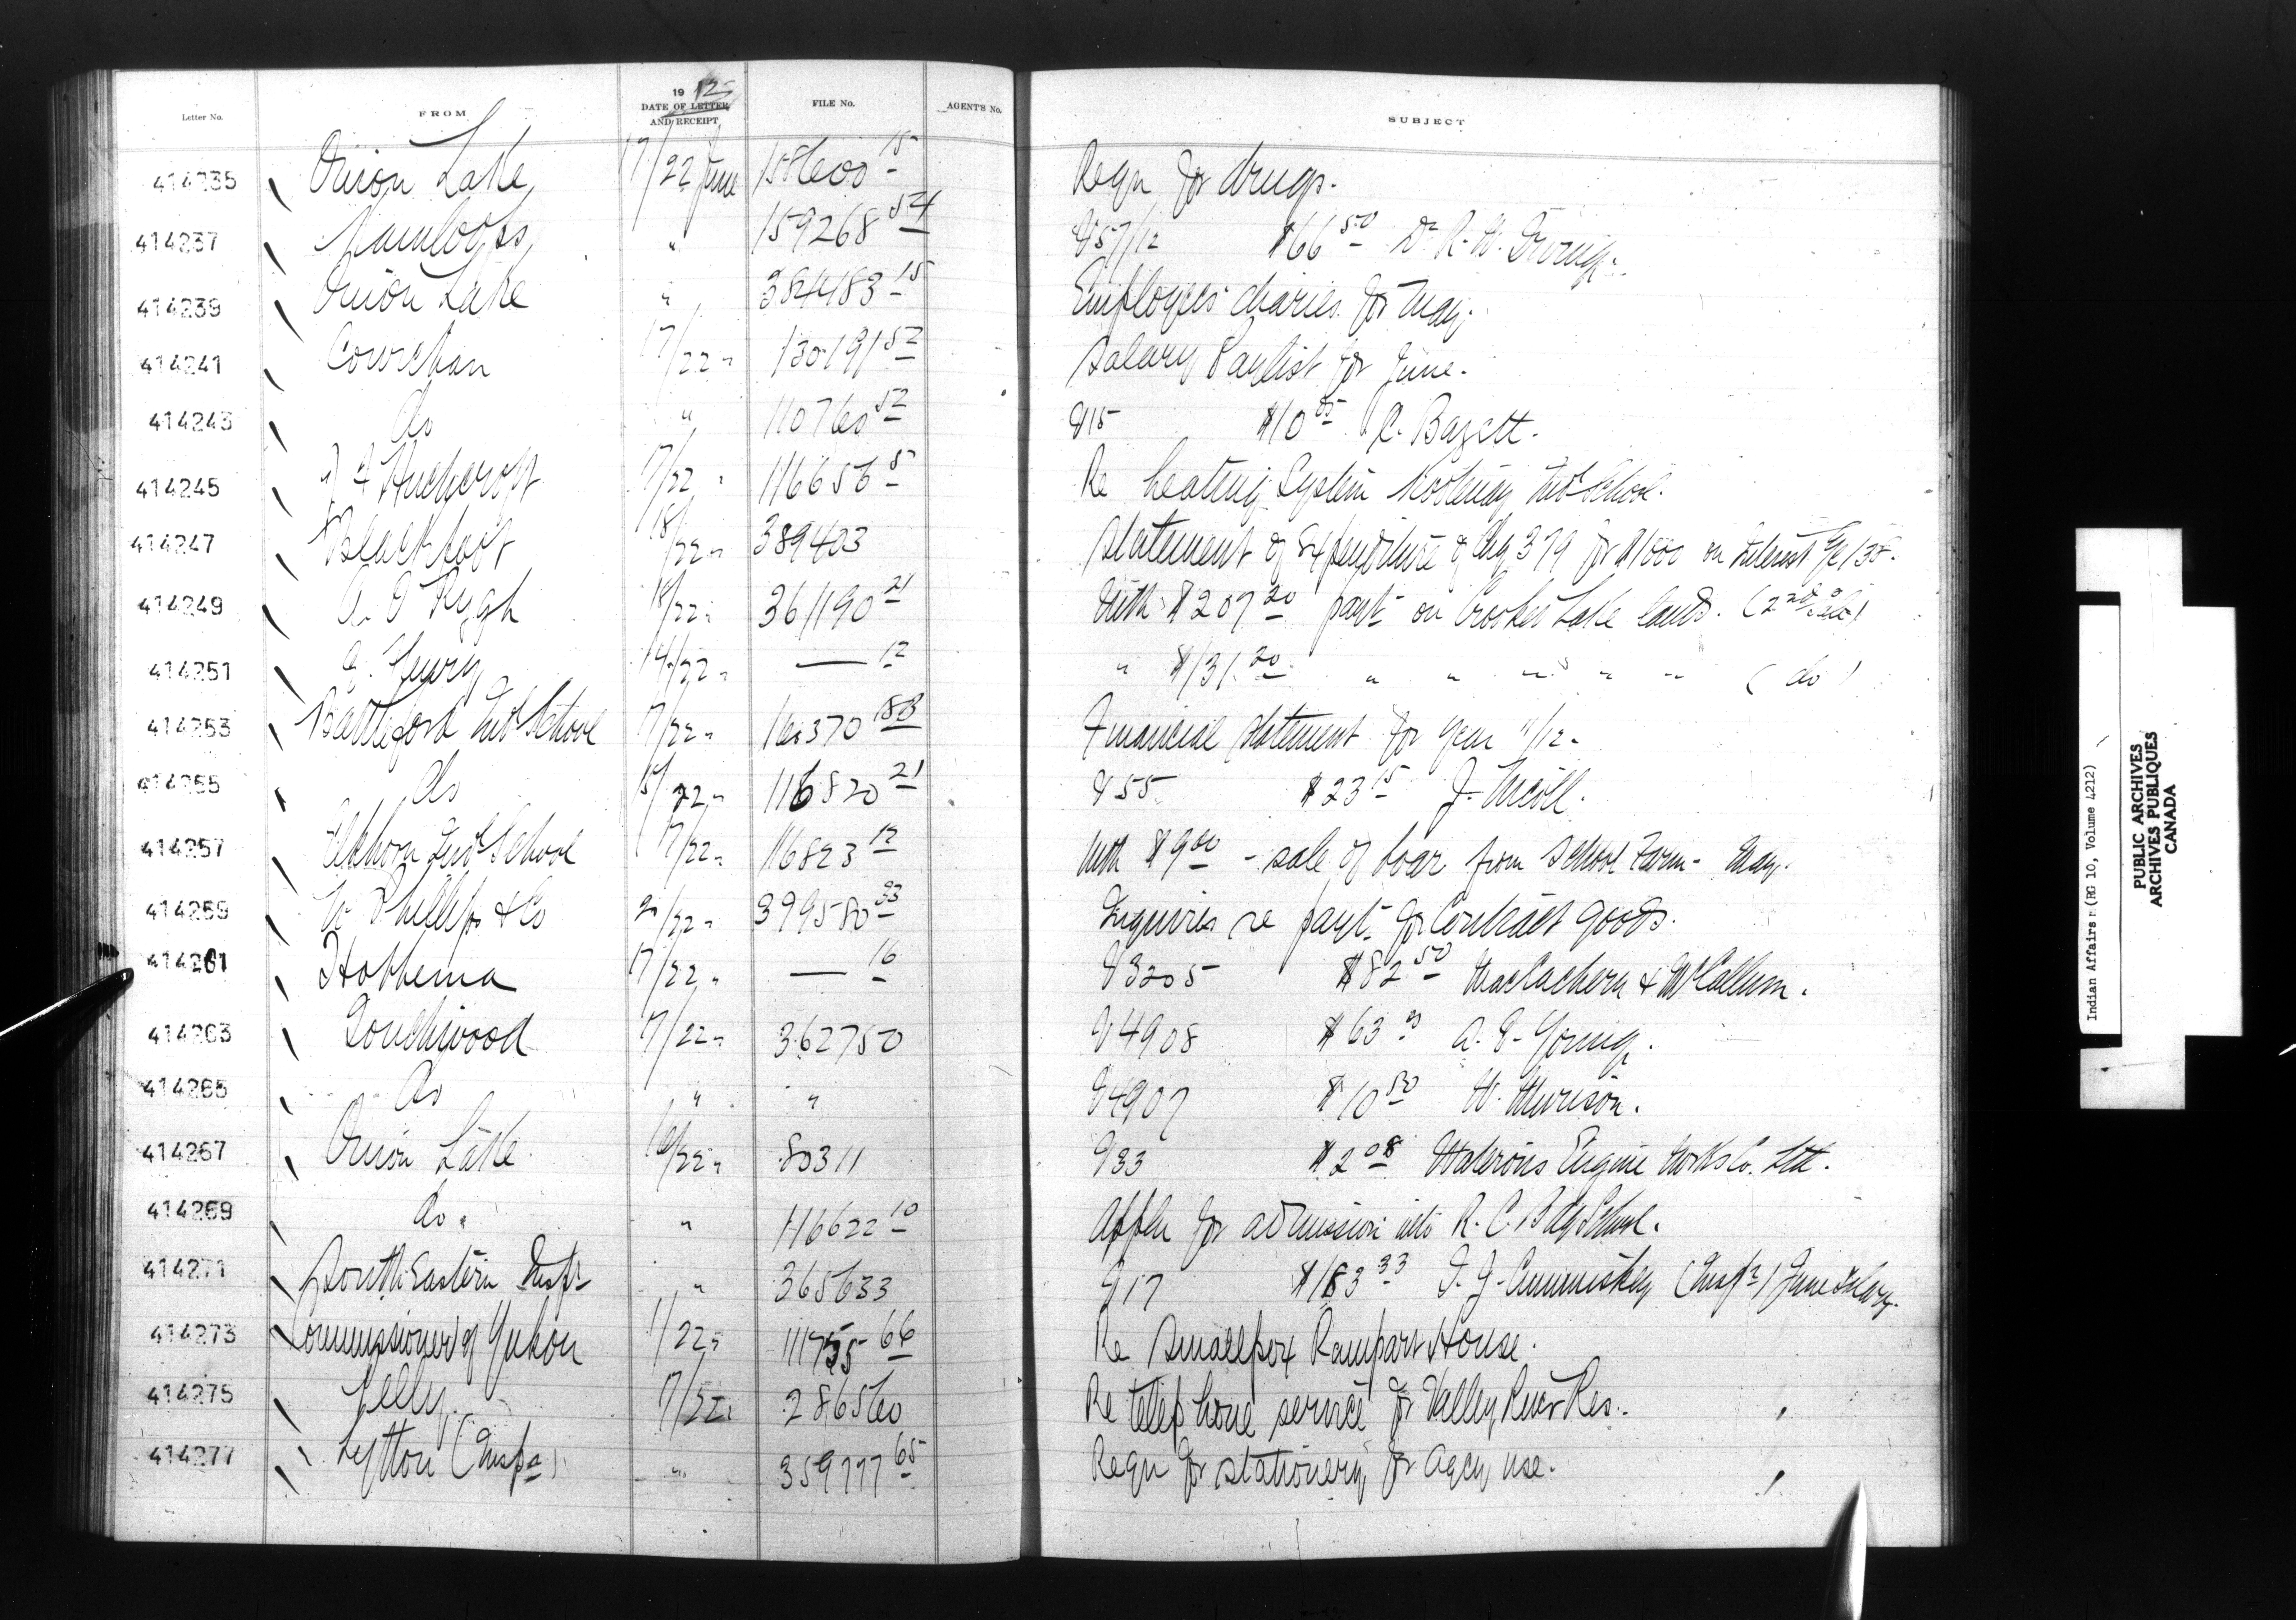 Letter No. FROM 1912 DATE OF LETTER AND RECEIPT FILE No. AGENT'S No. SUBJECT
414235 Onion Lake 17/22 June 158600 15 Reqn for drugs.
414237 Kamloops " 159268 54 V57/12 $66 50 Dr R. W. Irving.
414239 Onion Lake " 384483 15 Employees diaries for May.
414241 Cowichan 17/22 " 130191 52 Salary Paylist for June.
414243 do " 110760 52 V15 $10 05 R. Bazett.
414245 Huchcroft 17/22 " 116656 5 Re heating System Kootenay Ind School.
414247 Blackfoot 18/22 " 389403 Statement of Expenditure of Chq 379 for $1000 on Interest
414249 A. O Rygh 18/22 " 361190 21 With $207 20 payt on Crooked Lake lands. (22nd Sale)
414251 14/22 " — 12 " $131. 20 " " " " " (do)
414253 Battleford Ind School 17/22 " 116370 Financial statement for year 11/12.
414255 do 15/22 " 116820 21 V55 $23 15
414257 Elkhorn Ind School 17/22 " 116823 12 With $9 00 - sale of boar from School Farm - May.
414259 W Phillips & Co 22 " 399580 33 Inquiries re payt for Contract goods.
414261 Hobbema 17/22 " — 16 V3205 $82 50 MacEachern & McCallum.
414263 Touchwood 17/22 " 362750 V4908 $63 A. E. Young.
414265 do " " V4907 $10 50 W. Murison.
414267 Onion Lake 16/22 " 80311 V33 $2 08 Waterous Engine Works Co. Ltd.
414269 do. " 116622 10 Appln for admission into R. C. Bdg School.
414271 South Eastern Inspr " 365633 V17 $183 33 Cummiskey (Inspr) June salary.
414273 Commissioner of Yukon 1/22 " 111755 66 Re Smallpox Rampart House.
414275 Pelly. 17/22 " 286560 Re telephone service for Valley River Res.
414277 Lytton (Inspn) " 359777 65 Reqn for stationery for Agcy use.
Indian Affairs (RG 10, Volume 4212)
PUBLIC ARCHIVES
ARCHIVES PUBLIQUES
CANADA